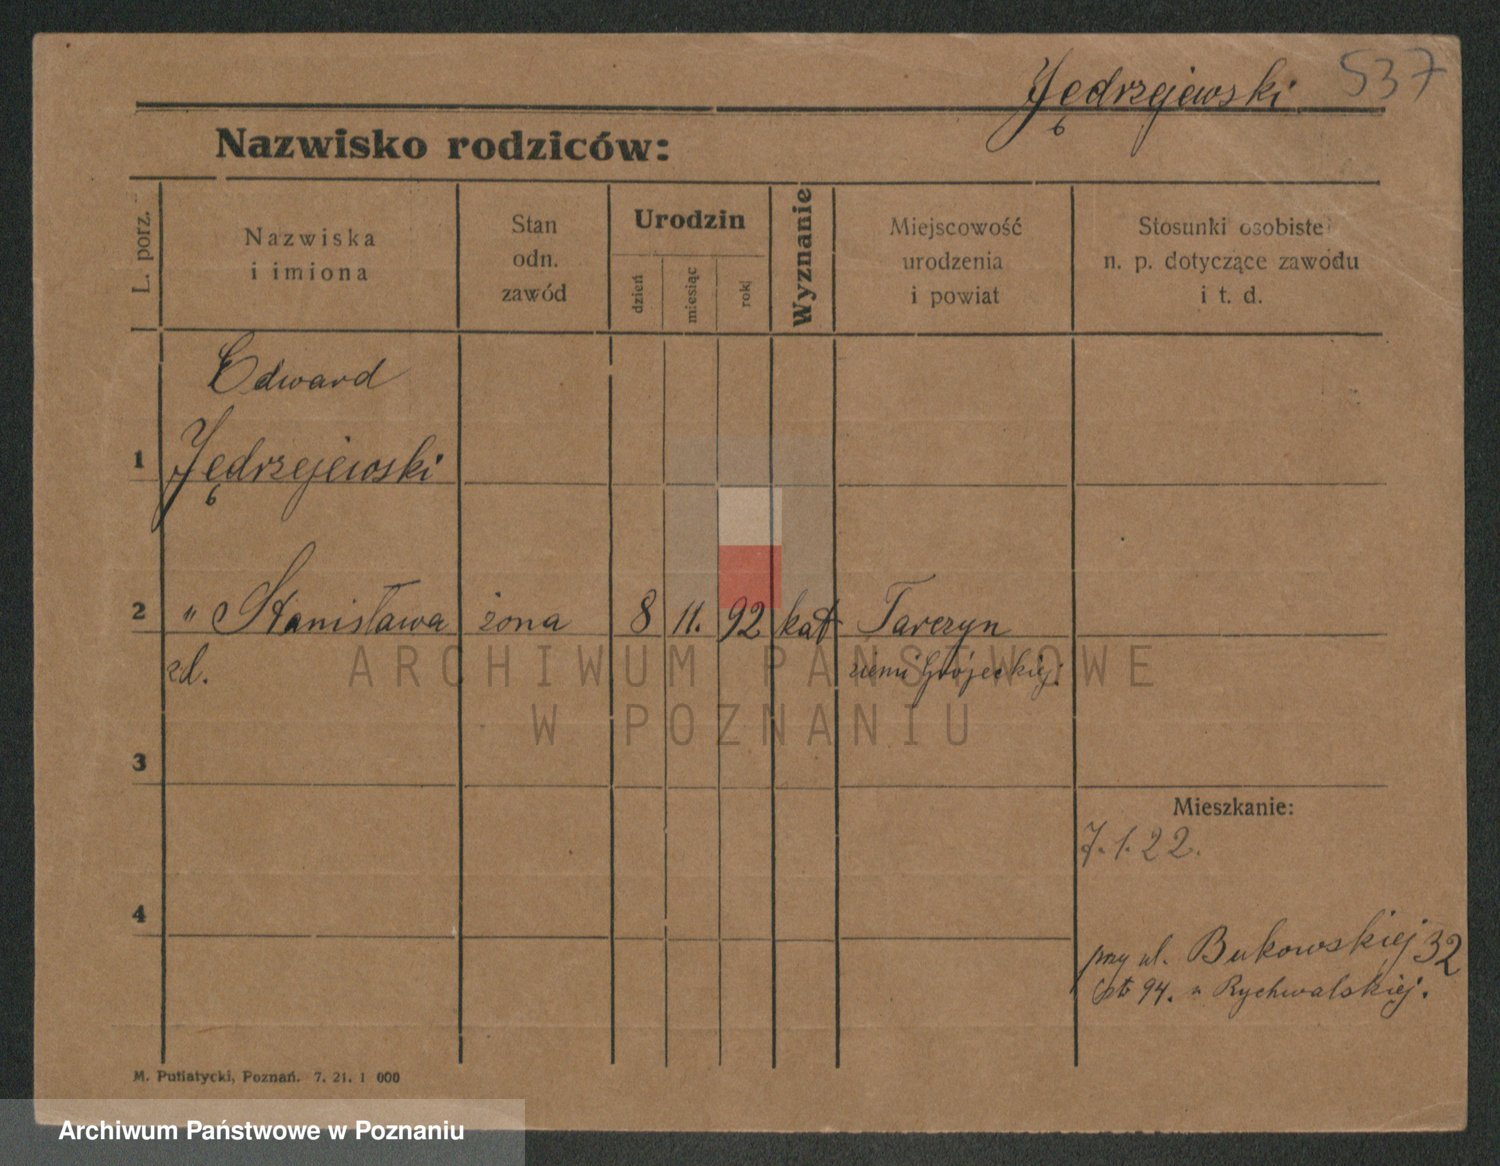 Jędrzejewski 537
Nazwisko rodziców:
L. porz.
Nazwiska
i imiona
Stan
odn.
zawód
Urodzin
dzień
miesiąc
rok
Wyznanie
Miejscowość
urodzenia
i powiat
Stosunki osobiste
n. p. dotyczące zawodu
i t. d.
Edward
1 Jędrzejewski
2 " Stanisława żona 8 11. 92 kat Tarczyn
zd. ziemi Grójeckiej.
ARCHIWUM PAŃSTWOWE
W POZNANIU
3
Mieszkanie:
7.1.22.
4
przy ul. Bukowskiej 32
94. u Rychwalskiej.
M. Putiatycki, Poznań. 7. 21. 1 000
Archiwum Państwowe w Poznaniu